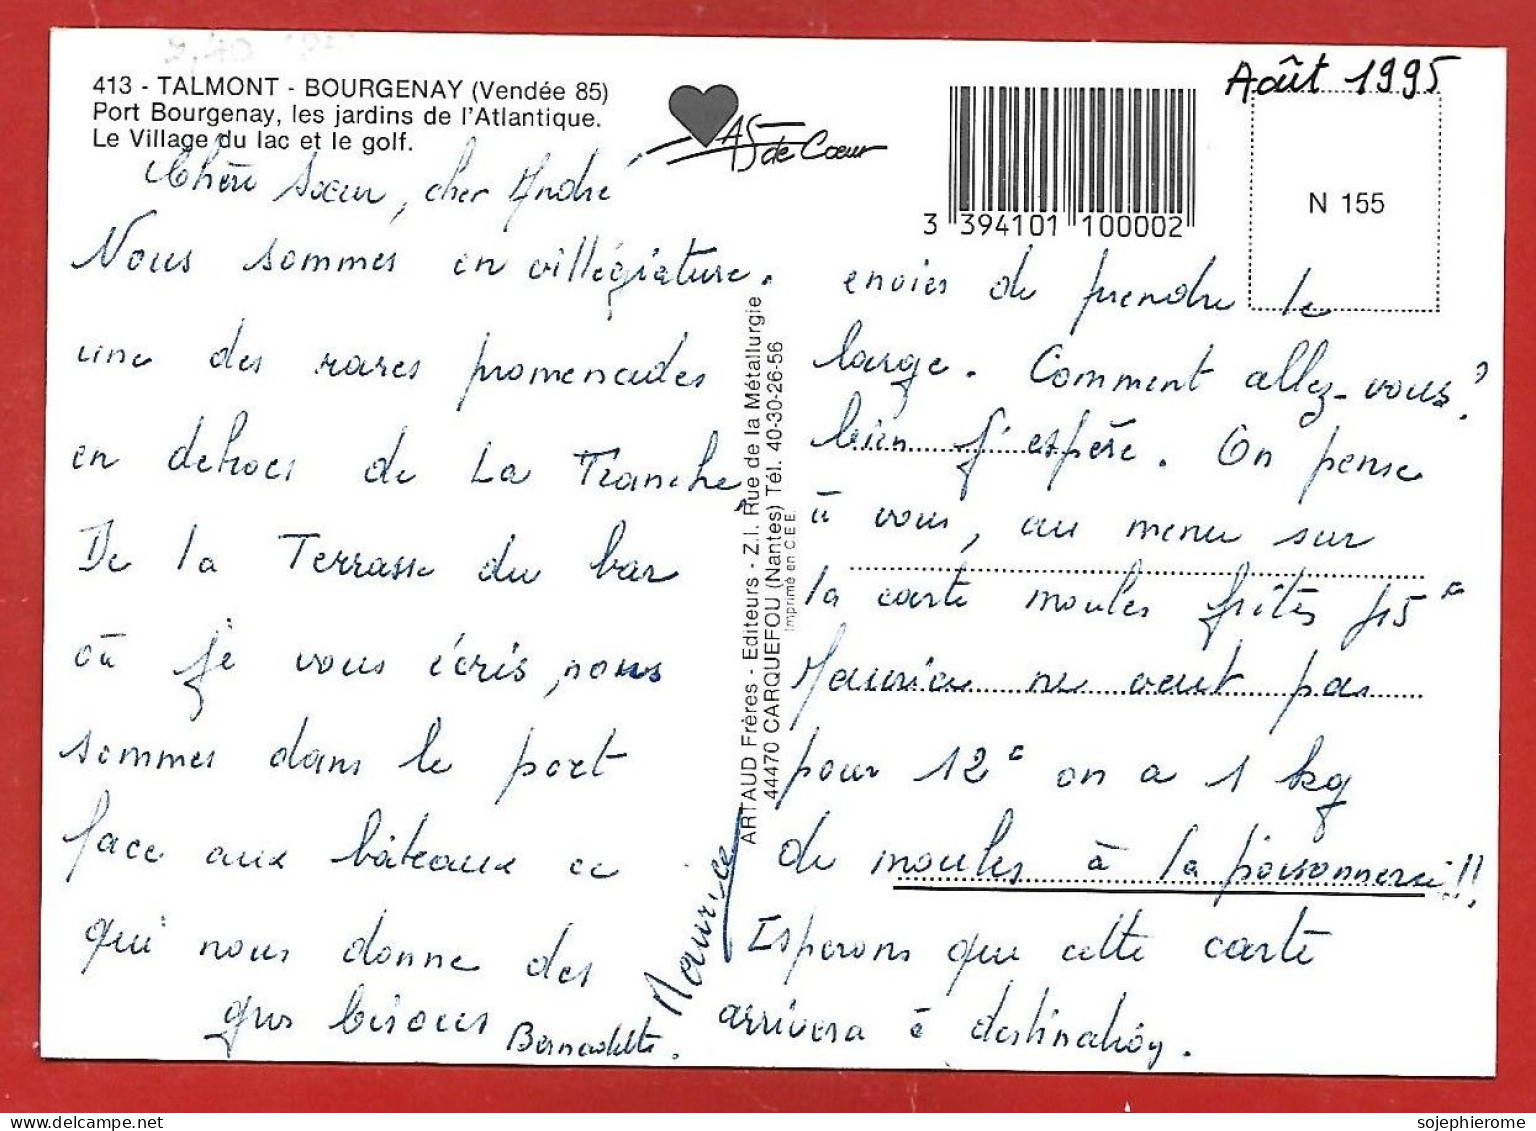 413 - TALMONT - BOURGENAY (Vendée 85)
Port Bourgenay, les jardins de l'Atlantique.
Le Village du lac et le golf.
AS de Cœur
3 394101 100002
Août 1995
N 155
Chère Sœur, cher André
Nous sommes en villégiature.
une des rares promenades
en dehors de La Tranche,
De la Terrasse du bar
où je vous écris, nous
sommes dans le port
face aux bâteaux ce
qui nous donne des
envies de prendre le
large. Comment allez-vous?
bien j'espère. On pense
à vous, au menu sur
la carte moules frites 45F
Maurice ne veut pas
pour 12F on a 1 kg
de moules à la poisonnerie!!
Esperons que cette carte
arrivera à destination.
gros bisous
Bernadette.
Maurice
ARTAUD Frères - Editeurs - Z.I. Rue de la Métallurgie
44470 CARQUEFOU (Nantes) Tél. 40-30-26-56
Imprimé en C.E.E.
sojephierome